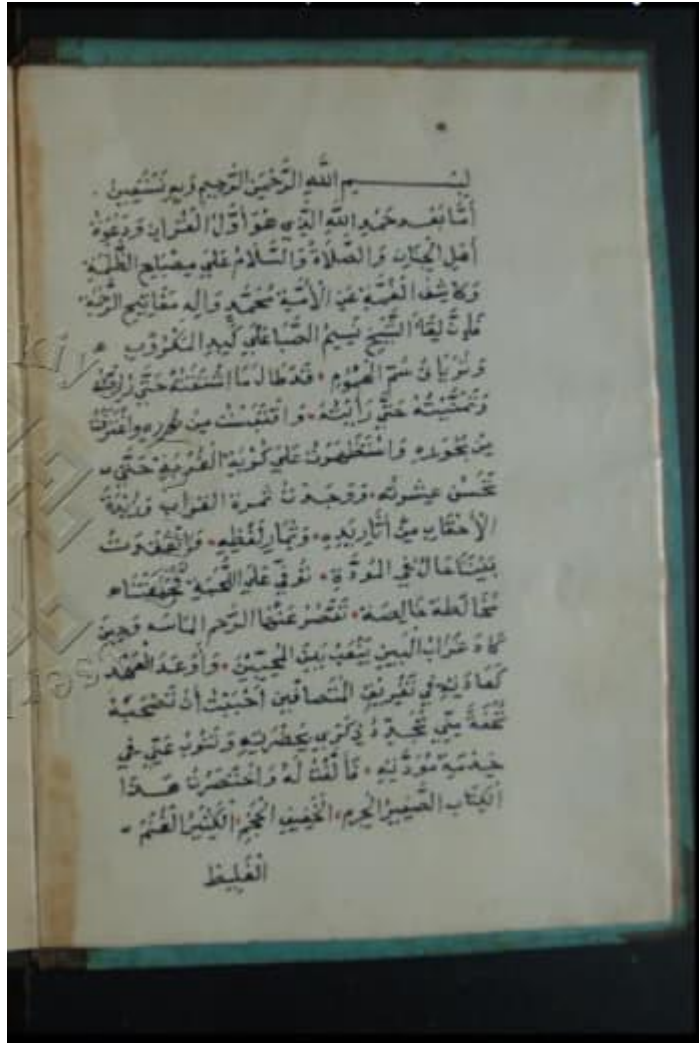 بسم الله الرحمن الرحيم وبه نستعين
أما بعد حمد الله الذي هو أول القرآن ودعوة
أهل الجنان والصلاة والسلام على مصباح الظلمة
وكاشف الغمة عن الأمة محمد وآله مفاتيح الرحمة
فإن لقاء الشيخ نسيم الصبا على كبد المكروب
وترياق سم الهموم قد طال ما استقته حتى رزقته
وتمنيته حتى رأيته واقتبست من نوره واغترفت
من بحوره واستظهرت على كربة الغربة حتى
بحسن عشرته ووجدت ثمرة الغراب وزبدة
الأحقاب من آثار يديه وثمار لفظه وانعقدت
بيننا حال في المودة توفي على اللحمة
مخالطة خالصة تقصر عنها الرحم الماسة وحين
كاد غراب البين ينعب بين المحبين وأوعد العهد
كعادته في تفريق المتصافين أحببت أن تصحبه
تحفة مني تجدد ذكري بحضرته وتنوب عني في
خدمة مودته فألفت له واختصرت هذا
الكتاب الصغير الجرم الخفيف الحجم الكثير الغنم
الغليظ